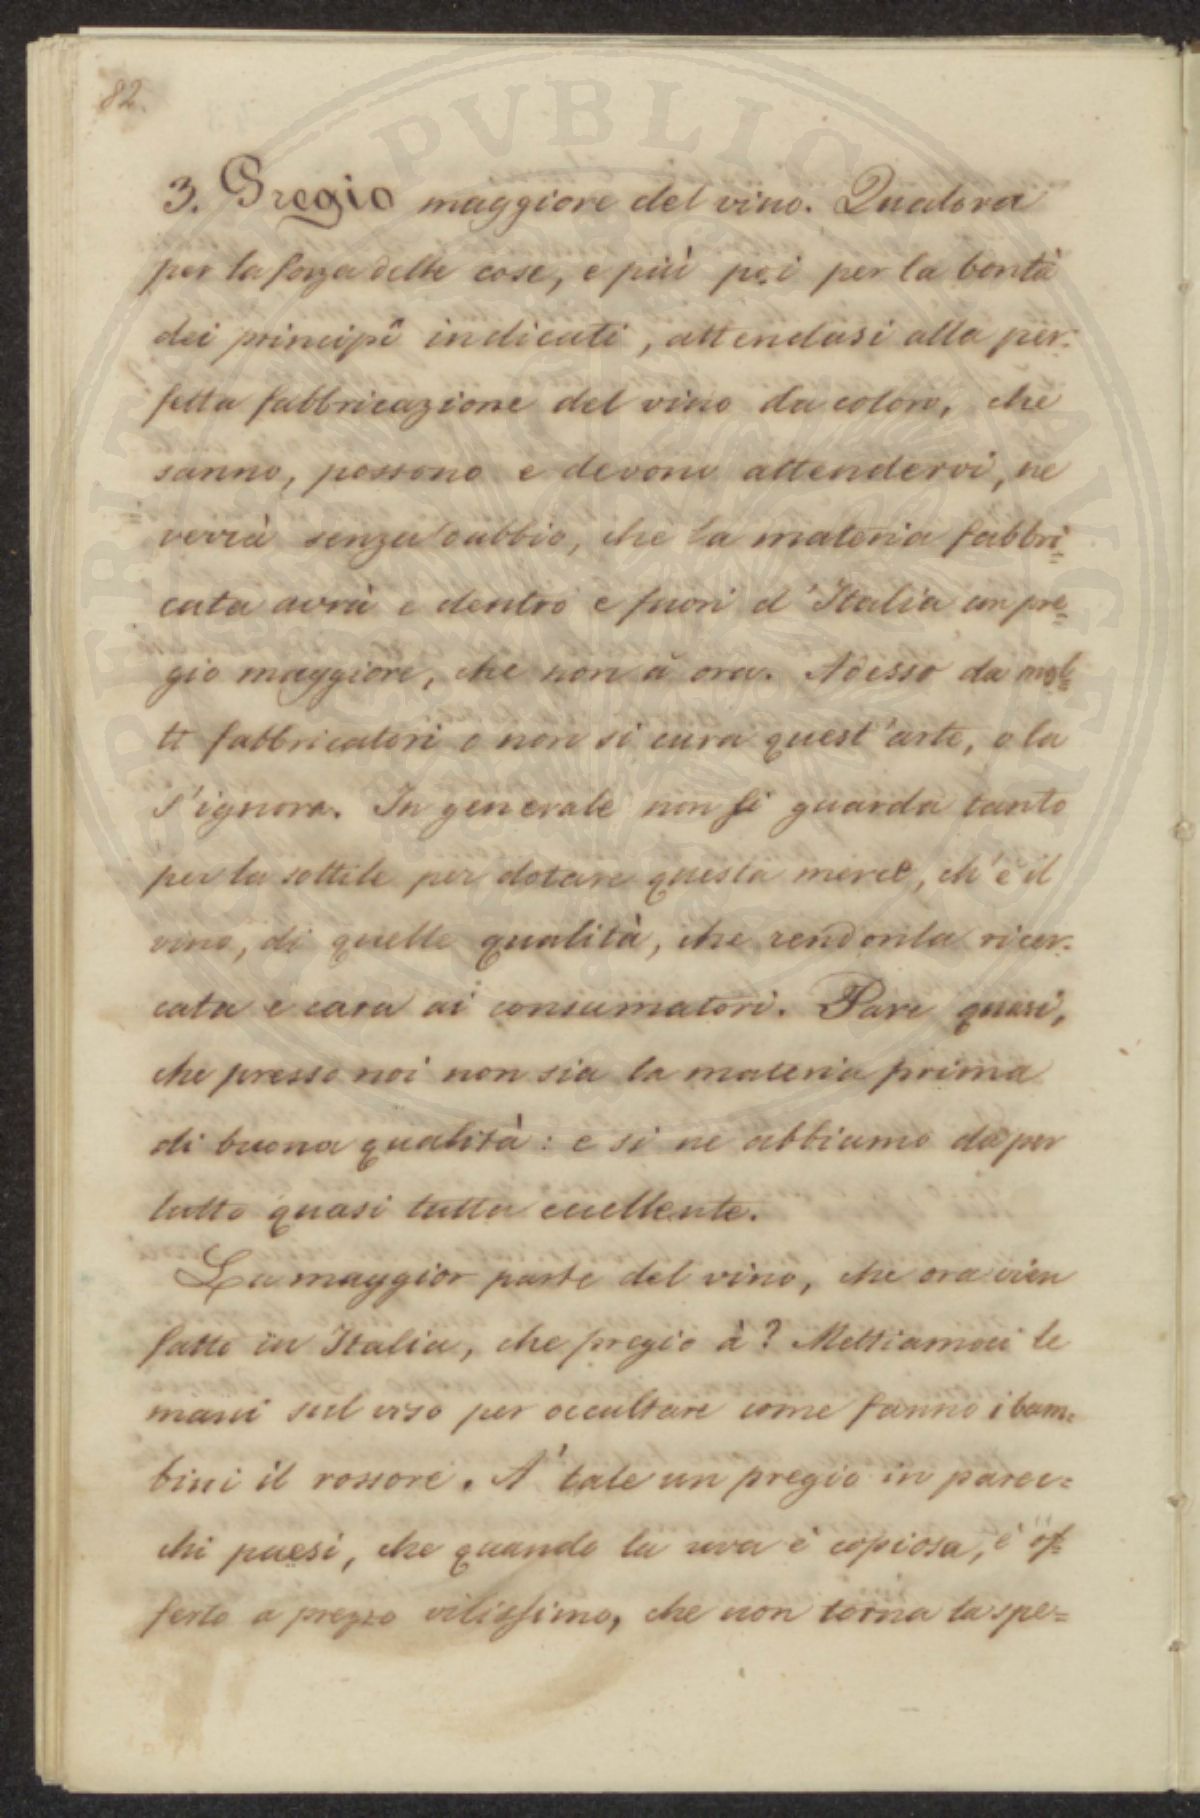 82.
3. Pregio maggiore del vino. Qualora
per la forza delle cose, e più poi per la bontà
dei principî indicati, attendasi alla per=
fetta fabbricazione del vino da coloro, che
sanno, possono e devono attendervi, ne
verrà senza dubbio, che la materia fabbri=
cata avrà e dentro e fuori d'Italia un pre=
gio maggiore, che non à ora. Adesso da mol=
ti fabbricatori o non si cura quest'arte, o la
s'ignora. In generale non si guarda tanto
per la sottile per dotare questa merce, ch'è il
vino, di quelle qualità, che rendonla ricer=
cata e cara ai consumatori. Pare quasi,
che presso noi non sia la materia prima
di buona qualità: e si ne abbiamo da per
tutto quasi tutta eccellente.
La maggior parte del vino, che ora vien
fatto in Italia, che pregio à? Mettiamoci le
mani sul viso per occultare come fanno i bam=
bini il rossore. À tale un pregio in parec=
chi paesi, che quando la uva è copiosa, è of=
ferto a prezzo vilissimo, che non torna la spe=
PERITIA PVBLICA AVGENTVR